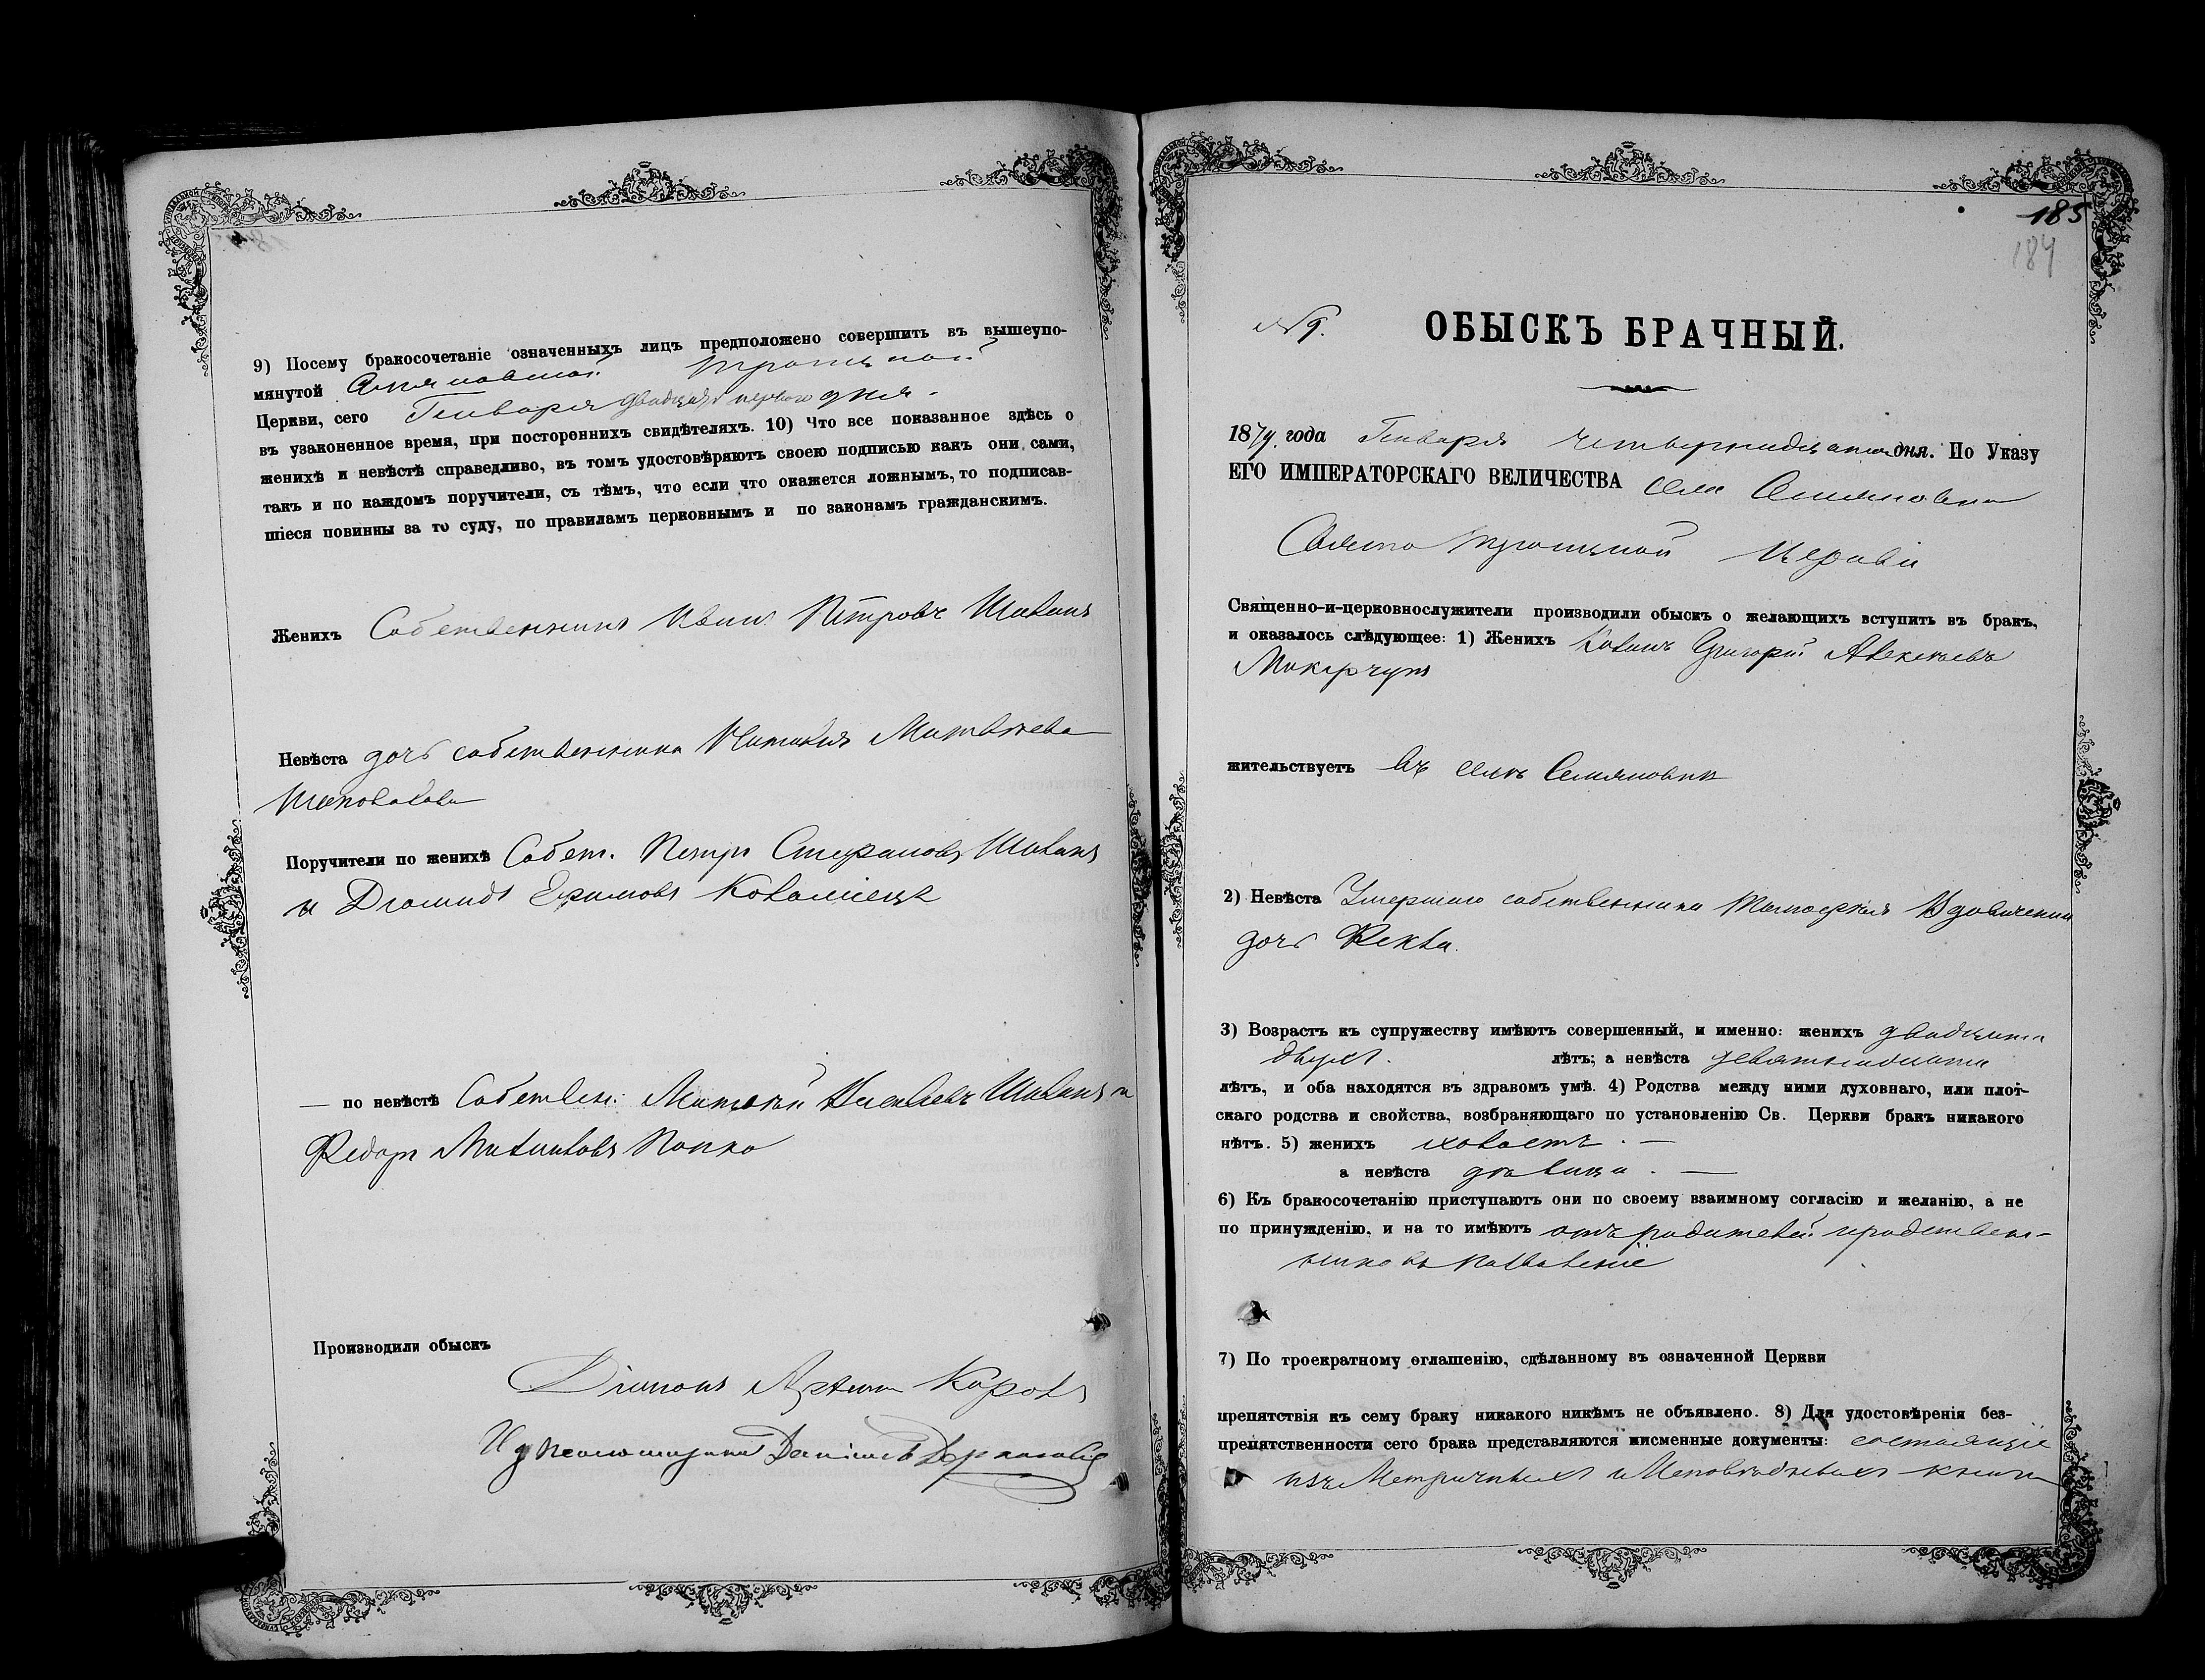 9) Посему бракосочетаніе означенныхъ лицъ предположено совершить въ вышеупо-
мянутой Троицкой
Церкви, сего Генваря двадцать перваго дня.
въ узаконенное время, при постороннихъ свидѣтеляхъ. 10) Что все показанное здѣсь о
женихѣ и невѣстѣ справедливо, въ томъ удостовѣряютъ своею подписью какъ они сами,
такъ и по каждомъ поручители, съ тѣмъ, что если что окажется ложнымъ, то подписав-
шіеся повинны за то суду, по правиламъ церковнымъ и по законамъ гражданскимъ.
Женихъ Собственникъ Иванъ Петровъ
Невѣста дочь собственника Наталія Матвѣева
Шаповалова
Поручители по женихѣ Собст. Петръ Стефановъ
и Діомидъ Ефимовъ
— по невѣстѣ Собствен. и
Федоръ Попко
Производили обыскъ
185
184
№ 9.
ОБЫСКЪ БРАЧНЫЙ.
1874 года Генваря четырнадцатого дня. По Указу
ЕГО ИМПЕРАТОРСКАГО ВЕЛИЧЕСТВА села Семяновки
Свято Троицкой Церкви
Священно-и-церковнослужители производили обыскъ о желающихъ вступить въ бракъ,
и оказалось слѣдующее: 1) Женихъ Козакъ Григорій Алексѣевъ
Макарчукъ
жительствуетъ въ селѣ Семяновки
2) Невѣста Умершаго собственника Тимофея Вдовиченка
дочь Фекла.
3) Возрастъ къ супружеству имѣютъ совершенный, и именно: женихъ двадцати
двухъ. лѣтъ; а невѣста девятнадцати
лѣтъ, и оба находятся въ здравомъ умѣ. 4) Родства между ними духовнаго, или плот-
скаго родства и свойства, возбраняющаго по установленію Св. Церкви бракъ никакого
нѣтъ. 5) женихъ холостъ. —
а невѣста дѣвица. —
6) Къ бракосочетанію приступаютъ они по своему взаимному согласію и желанію, а не
по принужденію, и на то имѣютъ отъ родителей и родствен-
никовъ позволеніе
7) По троекратному оглашенію, сдѣланному въ означенной Церкви
препятствія къ сему браку никакого никѣмъ не объявлено. 8) Для удостовѣренія без-
препятственности сего брака представляются письменные документы: состоящіе
изъ Метричныхъ и Исповѣдныхъ книгъ